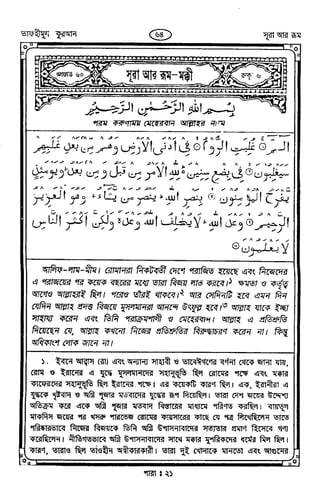 তাফহীমুল কুরআন
৬৪
সূরা আর রূম
আয়াত ৬০
সূরা আর রূম-মক্কী
রুকূ' ৬
بِسْمِ اللهِ الرَّحْمٰنِ الرَّحِيْمِ
পরম করুণাময় মেহেরবান আল্লাহর নামে
الٓمّٓ۝ غُلِبَتِ الرُّوْمُ۝ فِيْٓ اَدْنَى الْاَرْضِ وَهُمْ مِّنْۢ بَعْدِ غَلَبِهِمْ
سَيَغْلِبُوْنَ۝ فِيْ بِضْعِ سِنِيْنَ ؕ لِلّٰهِ الْاَمْرُ مِنْ قَبْلُ وَمِنْۢ بَعْدُ ؕ وَيَوْمَئِذٍ
يَّفْرَحُ الْمُؤْمِنُوْنَ۝ بِنَصْرِ اللهِ ؕ يَنْصُرُ مَنْ يَّشَآءُ ؕ وَهُوَ الْعَزِيْزُ
الرَّحِيْمُ۝ وَعْدَ اللهِ ؕ لَا يُخْلِفُ اللهُ وَعْدَهٗ وَلٰكِنَّ اَكْثَرَ النَّاسِ
لَا يَعْلَمُوْنَ۝
আলিফ-লাম-মীম। রোমানরা নিকটবর্তী দেশে পরাজিত হয়েছে এবং নিজেদের
এ পরাজয়ের পর কয়েক বছরের মধ্যে তারা বিজয় লাভ করবে।১ ক্ষমতা ও কর্তৃত্ব
আগেও আল্লাহরই ছিল। পরেও তাঁরই থাকবে।২ আর সেদিনটি হবে এমন দিন
যেদিন আল্লাহ প্রদত্ত বিজয়ে মুসলমানরা আনন্দে উৎফুল্ল হবে।৩ আল্লাহ যাকে ইচ্ছা
সাহায্য করেন এবং তিনি পরাক্রমশালী ও মেহেরবান। আল্লাহ এ প্রতিশ্রুতি
দিয়েছেন যে, আল্লাহ কখনো নিজের প্রতিশ্রুতির বিরুদ্ধাচরণ করেন না। কিন্তু
অধিকাংশ লোক জানে না।
১. ইবনে আব্বাস (রা) এবং অন্যান্য সাহাবী ও তাবেঈগণের বর্ণনা থেকে জানা যায়,
রোম ও ইরানের এ যুদ্ধে মুসলমানদের সহানুভূতি ছিল রোমের পক্ষে এবং মক্কার
কাফেরদের সহানুভূতি ছিল ইরানের পক্ষে। এর কয়েকটি কারণ ছিল। এক, ইরানীরা এ
যুদ্ধকে খৃষ্টবাদ ও অগ্নি পূজার মতবাদের যুদ্ধের রূপ দিয়েছিল। তারা দেশ জয়ের উদ্দেশ্য
অতিক্রম করে একে অগ্নি পূজার মতবাদ বিস্তারের মাধ্যমে পরিণত করছিল। বায়তুল
মাকদিস জয়ের পর খসরু পারভেজ রোমের কায়সারের কাছে যে পত্র লিখেছিলেন তাতে
পরিষ্কারভাবে নিজের বিজয়কে তিনি অগ্নি উপাসনাবাদের সত্যতার প্রমাণ হিসেবে গণ্য
করেছিলেন। নীতিগতভাবে অগ্নি উপাসনাবাদের সাথে মক্কার মুশরিকদের ধর্মের মিল ছিল।
কারণ, তারাও ছিল তাওহীদ অস্বীকারকারী। তারা দুই খোদাকে মানতো এবং আগুনের
পারা : ২১